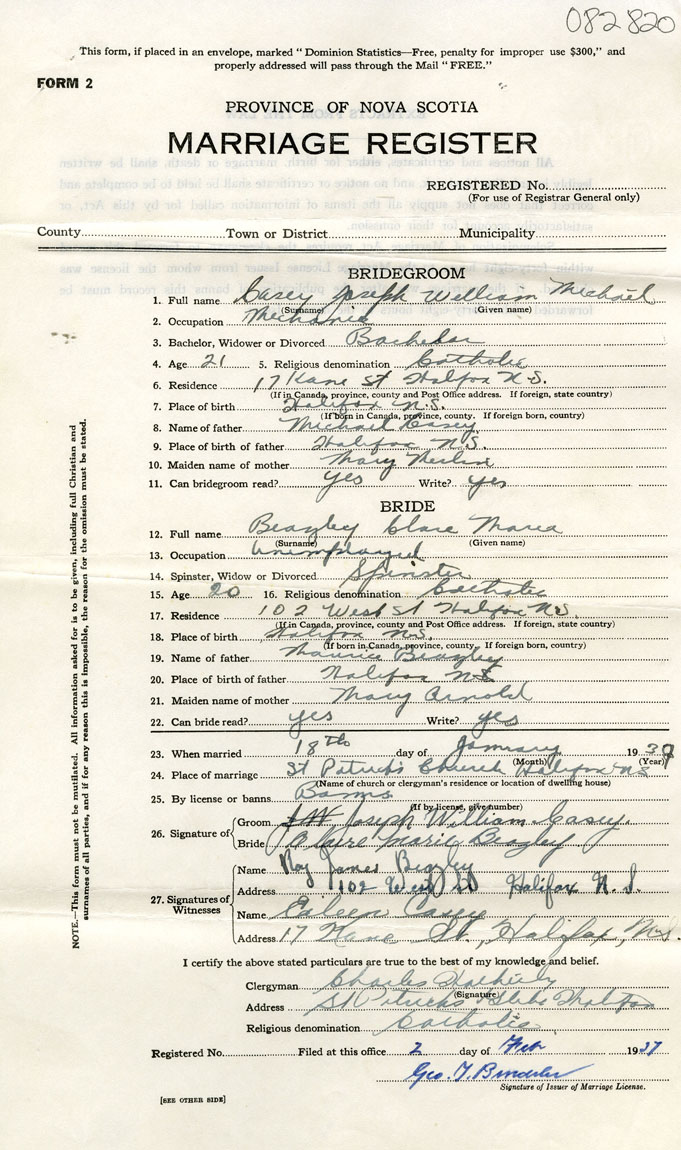 082820
This form, if placed in an envelope, marked "Dominion Statistics—Free, penalty for improper use $300," and
properly addressed will pass through the Mail "FREE."
FORM 2
PROVINCE OF NOVA SCOTIA
MARRIAGE REGISTER
REGISTERED No.
(For use of Registrar General only)
County Town or District Municipality
BRIDEGROOM
1. Full name Casey Joseph William Michael
(Surname) (Given name)
2. Occupation Mechanic
3. Bachelor, Widower or Divorced Bachelor
4. Age 21 5. Religious denomination Catholic
6. Residence 17 Kane St Halifax N.S.
(If in Canada, province, county and Post Office address. If foreign, state country)
7. Place of birth Halifax N.S.
(If born in Canada, province, county. If foreign born, country)
8. Name of father Michael Casey
9. Place of birth of father Halifax N.S.
10. Maiden name of mother Mary
11. Can bridegroom read? yes Write? yes
BRIDE
12. Full name Beazley Clare Maria
(Surname) (Given name)
13. Occupation Unemployed
14. Spinster, Widow or Divorced Spinster
15. Age 20 16. Religious denomination Catholic
17. Residence 102 West St Halifax N.S.
(If in Canada, province, county and Post Office address. If foreign, state country)
18. Place of birth Halifax N.S.
(If born in Canada, province, county. If foreign born, country)
19. Name of father Maurice Beazley
20. Place of birth of father Halifax N.S
21. Maiden name of mother Mary Arnold
22. Can bride read? yes Write? yes
23. When married 18th day of January 1937
(Month) (Year)
24. Place of marriage St Patrick's Church Halifax N.S
(Name of church or clergyman's residence or location of dwelling house)
25. By license or banns Banns
(If by license, give number)
26. Signature of Groom Joseph William Casey.
Bride Claire Marie Beazley
27. Signatures of Witnesses
Name Roy James Beazley
Address 102 West St Halifax N.S.
Name Eileen Casey
Address 17 Kane St., Halifax, N.S.
I certify the above stated particulars are true to the best of my knowledge and belief.
Clergyman Charles
(Signature)
Address St Patricks Glebe Halifax
Religious denomination Catholic
Registered No. Filed at this office 2 day of Feb 1937
Geo. T.
Signature of Issuer of Marriage License.
[SEE OTHER SIDE]
NOTE.—This form must not be mutilated. All information asked for is to be given, including full Christian and
surnames of all parties, and if for any reason this is impossible, the reason for the omission must be stated.